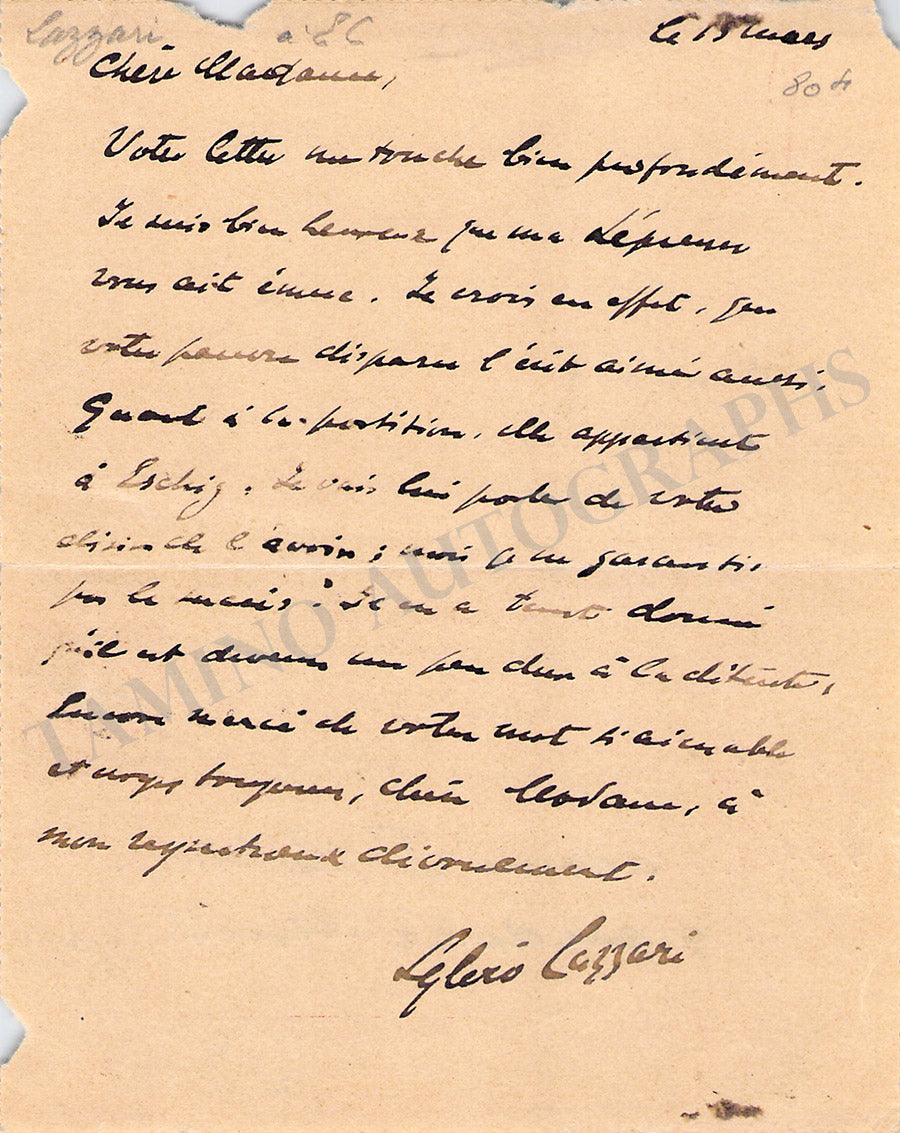 Lazzari à EC
le 13 mars
80 fr
Chère Madame,
Votre lettre me touche bien profondément.
Je suis bien heureux que ma Lépreuse
vous ait émue. Je crois en effet, que
votre pauvre disparu l'eût aimé aussi.
Quant à la partition, elle appartient
à Eschig. Je vais lui parler de votre
désir de l'avoir ; mais je ne garantis
pas le succès : Je en a tant donné
qu'il est devenu un peu dur à la détente.
Encore merci de votre mot si aimable
et croyez toujours, chère Madame, à
mon respectueux dévouement.
Sylvio Lazzari
TAMINO AUTOGRAPHS